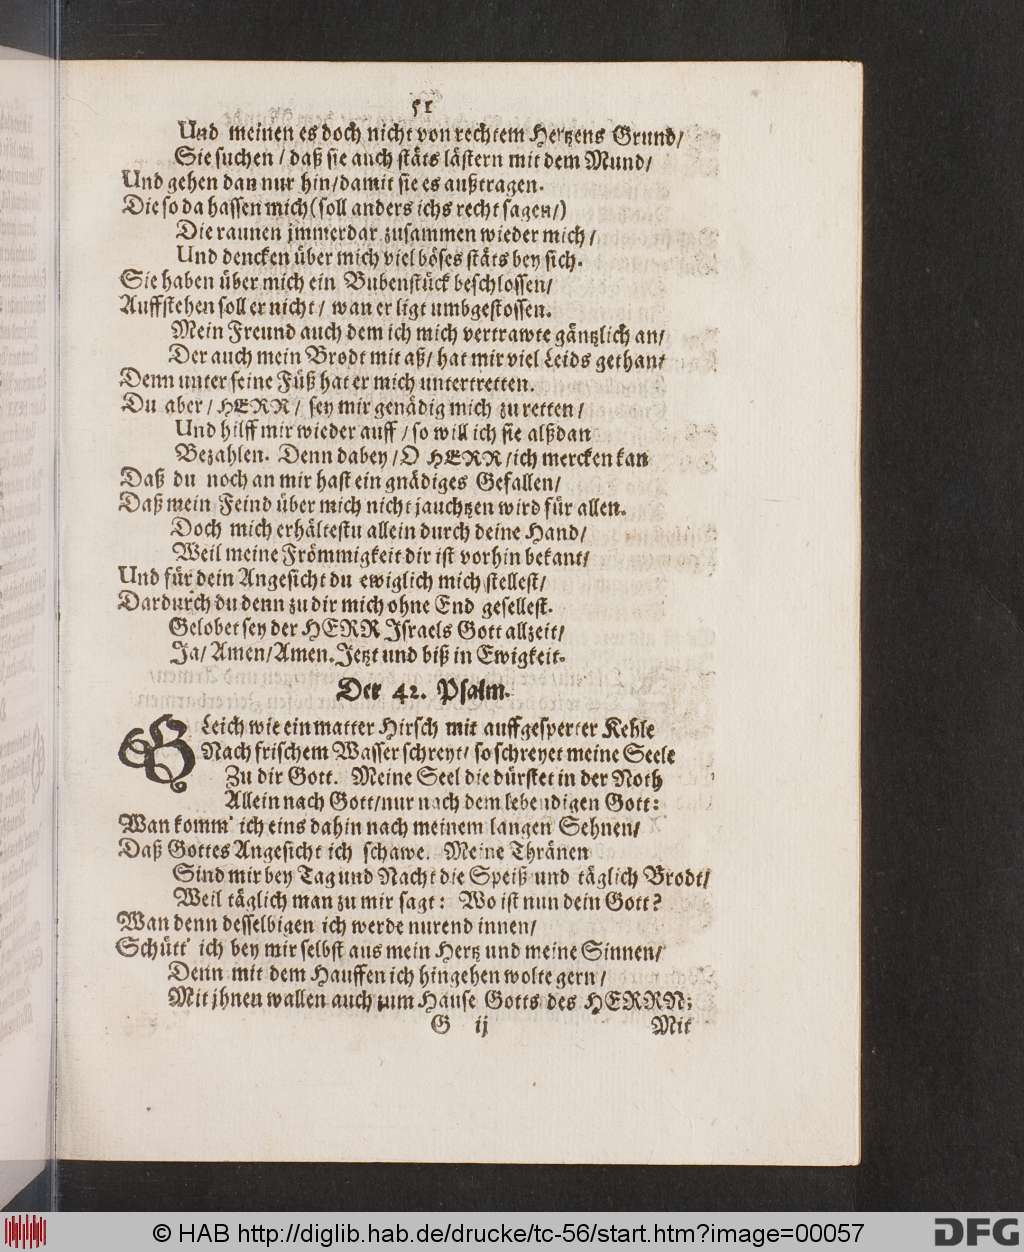 51
Und meinen es doch nicht von rechtem Hertzens Grund/
Sie suchen / daß sie auch stäts lästern mit dem Mund/
Und gehen dan nur hin/damit sie es außtragen.
Die so da hassen mich (soll anders ichs recht sagen/)
Die raunen jmmerdar zusammen wieder mich /
Und dencken über mich viel böses stäts bey sich.
Sie haben über mich ein Bubenstück beschlossen/
Auffstehen soll er nicht / wan er ligt umbgestossen.
Mein Freund auch dem ich mich vertrawte gäntzlich an/
Der auch mein Brodt mit aß/ hat mir viel Leids gethan/
Denn unter seine Füß hat er mich untertretten.
Du aber / HERR / sey mir genädig mich zu retten /
Und hilff mir wieder auff / so will ich sie alßdan
Bezahlen. Denn dabey / O HERR /ich mercken kan
Daß du noch an mir hast ein gnädiges Gefallen/
Daß mein Feind über mich nicht jauchtzen wird für allen.
Doch mich erhältestu allein durch deine Hand/
Weil meine Frömmigkeit dir ist vorhin bekant/
Und für dein Angesicht du ewiglich mich stellest/
Dardurch du denn zu dir mich ohne End gesellest.
Gelobet sey der HERR Israels Gott allzeit/
Ja/ Amen/Amen. Jetzt und biß in Ewigkeit.
Der 42. Psalm.
GLeich wie ein matter Hirsch mit auffgesperter Kehle
Nach frischem Wasser schreyt/ so schreyet meine Seele
Zu dir Gott. Meine Seel die dürstet in der Noth
Allein nach Gott/nur nach dem lebendigen Gott:
Wan komm' ich eins dahin nach meinem langen Sehnen/
Daß Gottes Angesicht ich schawe. Meine Thränen
Sind mir bey Tag und Nacht die Speiß und täglich Brodt/
Weil täglich man zu mir sagt: Wo ist nun dein Gott?
Wan denn desselbigen ich werde nurend innen/
Schütt' ich bey mir selbst aus mein Hertz und meine Sinnen/
Denn mit dem Hauffen ich hingehen wolte gern /
Mit jhnen wallen auch zum Hause Gotts des HERRN;
G ij Mit
© HAB http://diglib.hab.de/drucke/tc-56/start.htm?image=00057 DFG